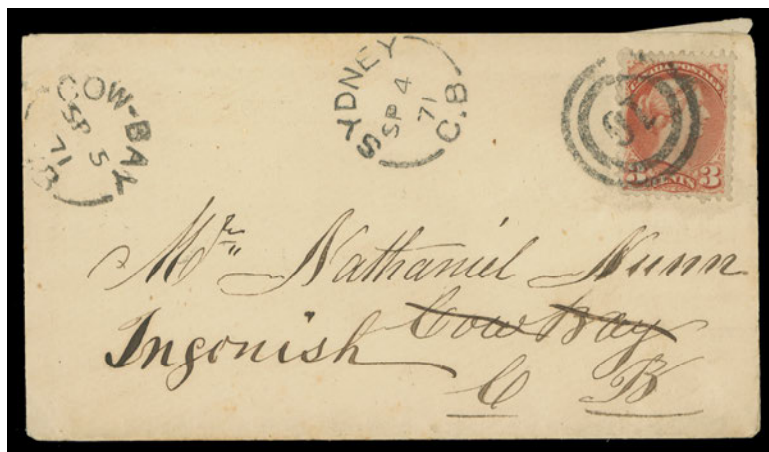 COW-BAY
SP 5
71
SYDNEY
SP 4
71
C.B
CANADA POSTAGE
3 CENTS 3
Mr. Nathaniel Nunn
Ingonish Cow Bay
C B